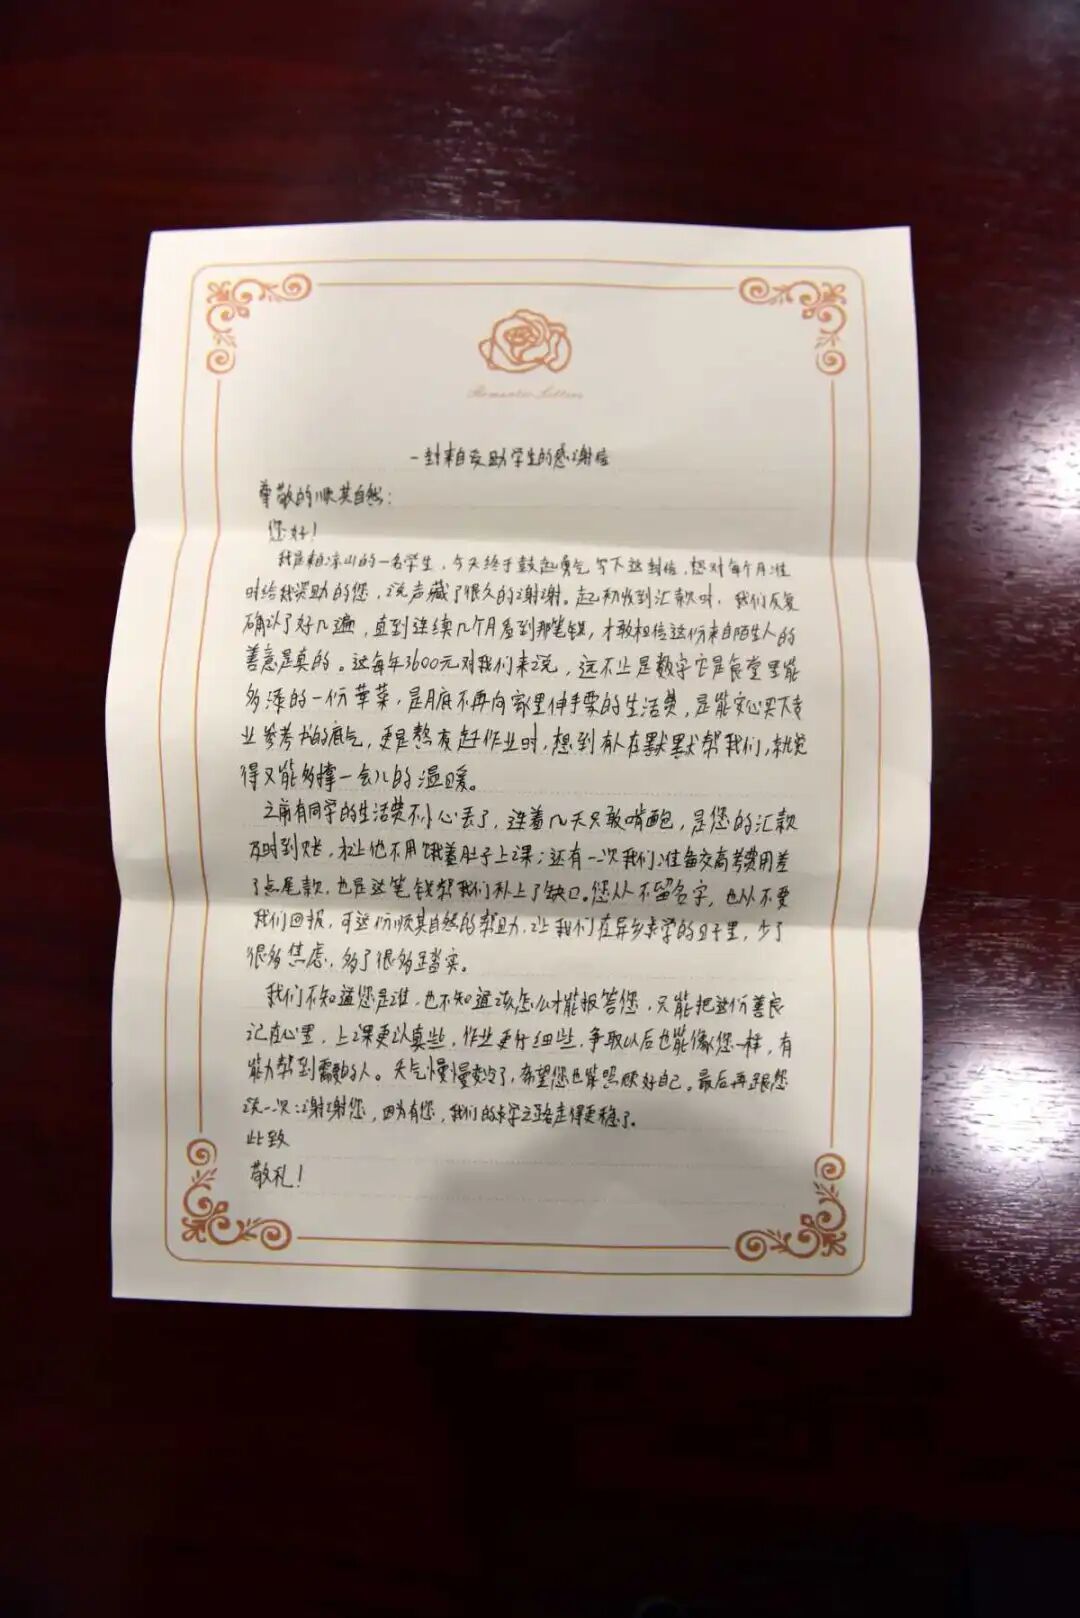 Romantic Letters
一封来自受助学生的感谢信
尊敬的顺其自然：
您好！
我是来自凉山的一名学生，今天终于鼓起勇气写下这封信，想对每个月准
时给我资助的您，说声藏了很久的谢谢。起初收到汇款时，我们反复
确认了好几遍，直到连续几个月看到那笔钱，才敢相信这份来自陌生人的
善意是真的。这每年3600元对我们来说，远不止是数字它是食堂里能
多添的一份荤菜，是月底不再向家里伸手要的生活费，是能安心买下专
业参考书的底气，更是熬夜赶作业时，想到有人在默默帮我们，就觉
得又能多撑一会儿的温暖。
之前有同学的生活费不小心丢了，连着几天只敢啃面包，是您的汇款
及时到账，让他不用饿着肚子上课；还有一次我们准备交高考费用差
了点尾款，也是这笔钱帮我们补上了缺口。您从不留名字，也从不要
我们回报，可这份顺其自然的帮助，让我们在异乡求学的日子里，少了
很多焦虑，多了很多踏实。
我们不知道您是谁，也不知道该怎么才能报答您，只能把这份善良
记在心里，上课更认真些，作业更仔细些，争取以后也能像您一样，有
能力帮到需要的人。天气慢慢变冷了，希望您也能照顾好自己。最后再跟您
说一次：谢谢您，因为有您，我们的求学之路走得更稳了。
此致
敬礼！